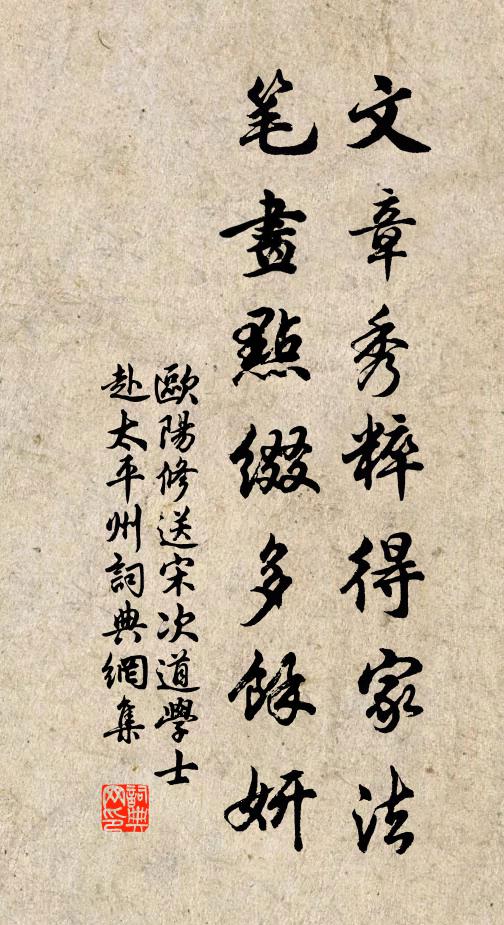 文章秀粹得家法
笔畫點綴多餘妍
歐陽修送宋次道學士
赴太平州詞典網集
詞典
网印